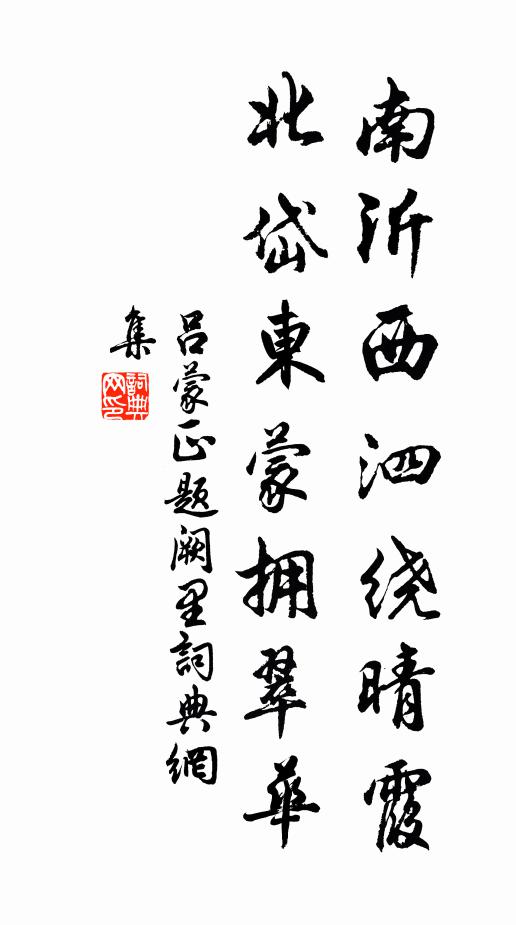 南沂西泗绕晴霞
北岱東蒙拥翠华
吕蒙正题阙里詞典網
集
詞典网印